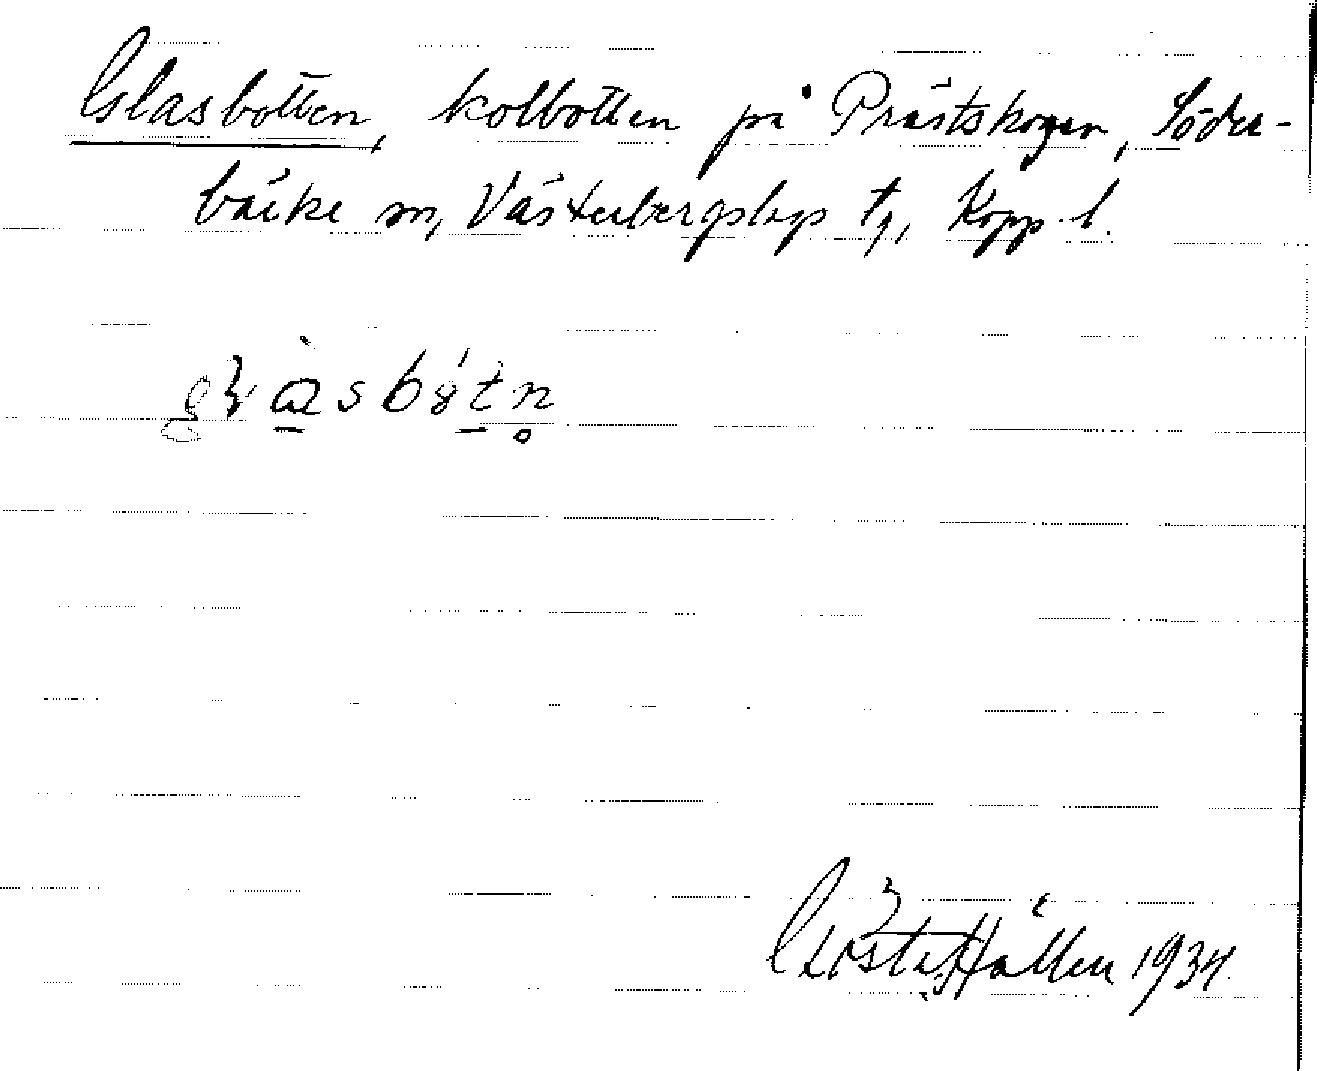 Glasbotten, kolbotten på Prästskogen, Söder-
bärke sn, Västerbergslags tg, Kopp. l.
Gösta Hållen 1934.